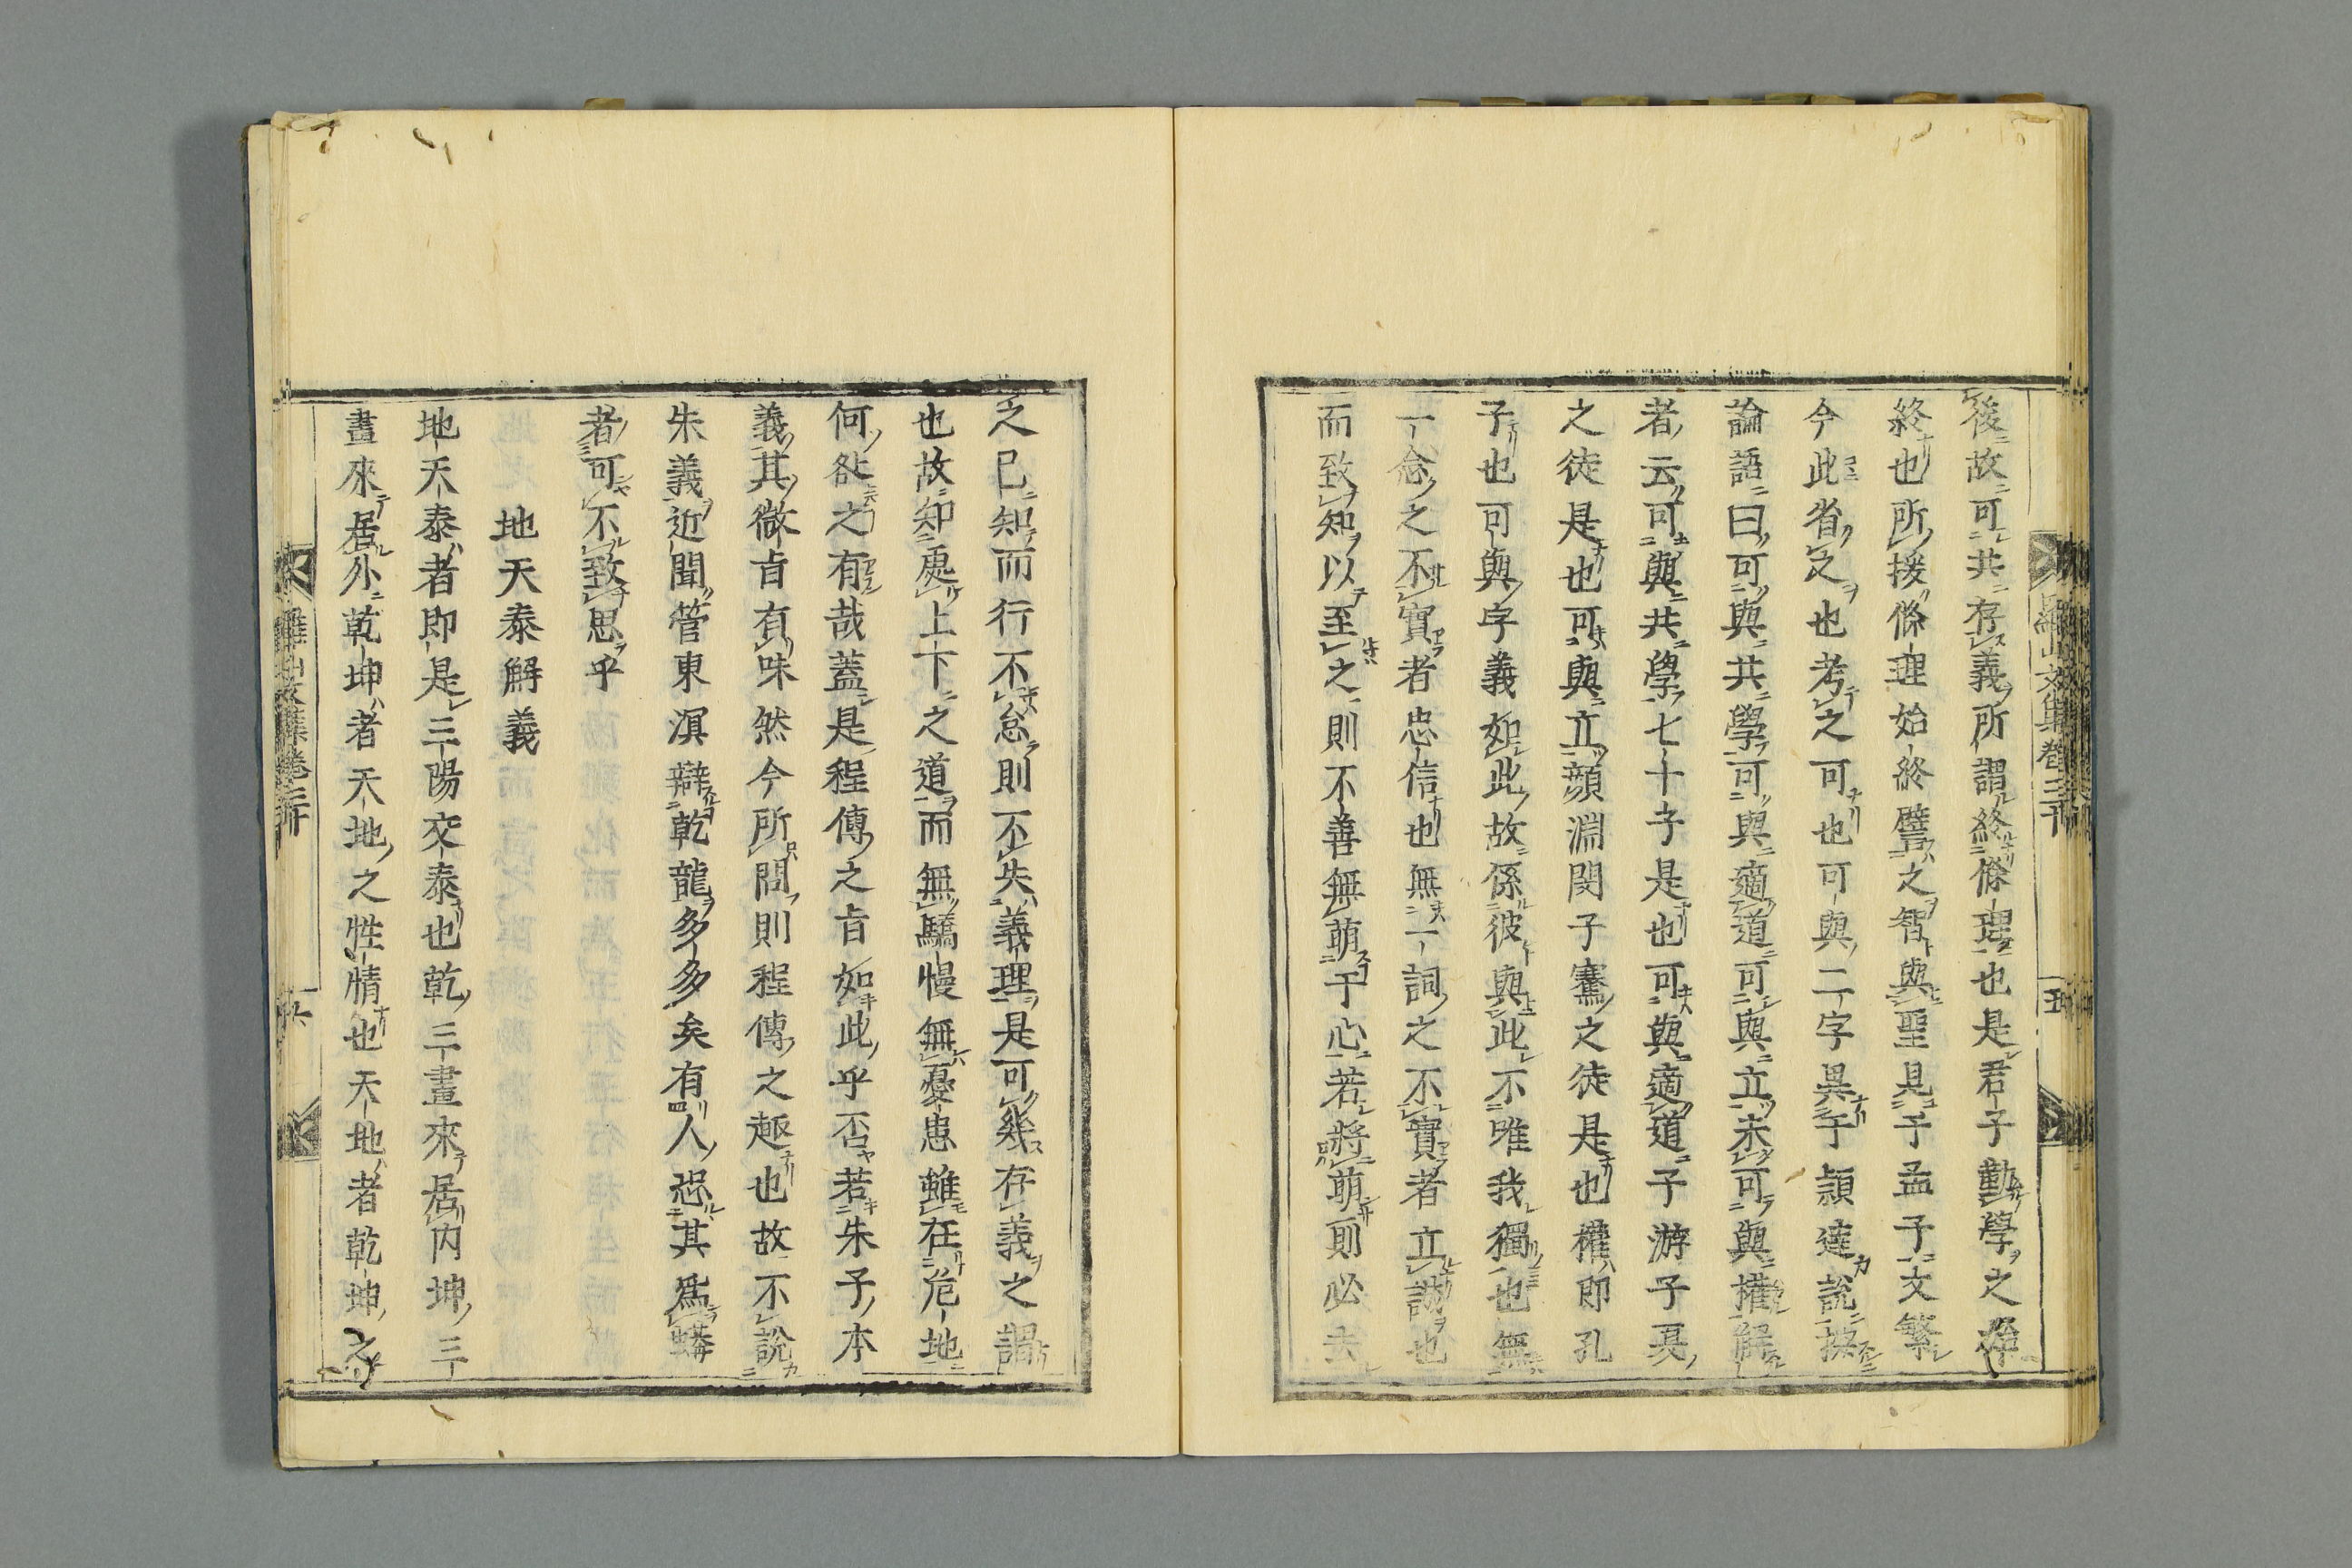 後故可共存義所謂終條理也是君子勤學之
終也所援條理始終譬之智與聖見于孟子文繁
今此省之也考之可也可與二字異于穎達說
論語曰可與共學可與適道可與立未可與權解
者云可與共學七十子是也可與適道子游子夏
之徒是也可與立顔淵閔子騫之徒是也權即孔
子也可與字義如此故係彼與此不唯我獨也無
一念之不實者忠信也無一詞之不實者立誠也
而致知以至之則不善無萌于心若將萌則必去
之已知而行不怠則不失義理是可幾存義之謂
也故知處上下之道而無驕慢無憂患雖在危地
何咎之有哉蓋是程傳之旨如此乎否若朱子本
義其微旨有味然今所問則程傳之趣也故不說
朱義近聞管東溟辯乾龍多多矣有人恐其爲蟒
者可不致思乎
地天泰解義
地天泰者即是三陽交泰也乾三畫來居内坤三
畫來居外乾坤者天地之性情也天地者乾坤之
羅山文集卷三十
五
羅山文集卷三十
六